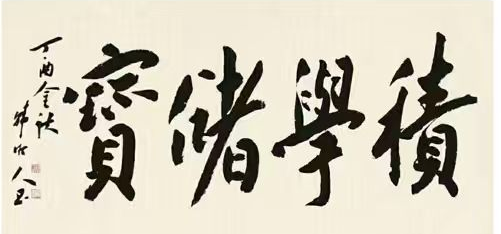 積學儲寶
丁酉金秋
人玉